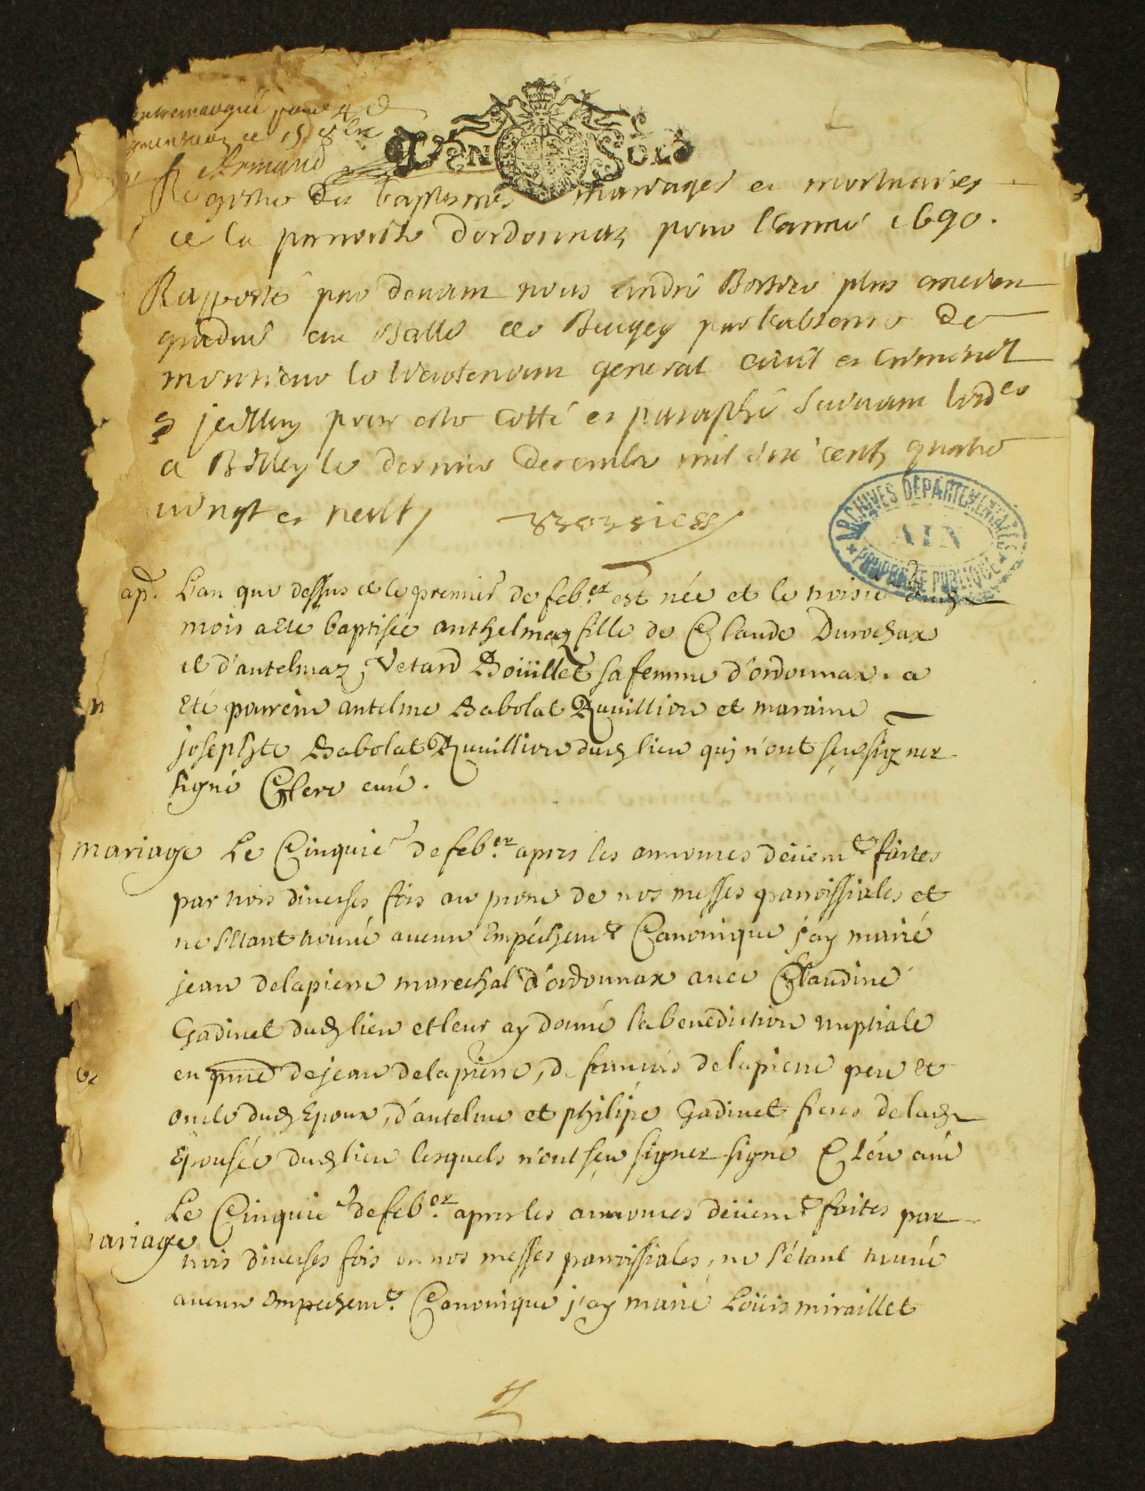 Un Sols
Armand
Registre des baptesmes mariages et mortuaires
de la parroisse d'ordonnaz pour l'année 1690.
Rapporté par devant nous André plus ancien
gradué au Balle de Beugey par l'absence de
monsieur le lieutenant general civil et criminel
pour estre cotté et paraphé suivant l'ord.ce
a Belley le dernier decembre mil six cents quatre
vingt et neuf
ARCHIVES DEPARTEMENTALES
AIN
PROPRIETE PUBLIQUE
bap. L'an que dessus et le premier de feb.er est née et le troisie dud
mois a ete baptisée anthelmaz fille de Claude Durochax
et d'antelmaz Vetard Boüillet sa femme d'ordonnax. a
eté parrein antelme Babolat Ruvillion et maraine
josephte Babolat Ruvillion dud lieu quj n'ont sçeu signer
signé Clerc curé.
mariage Le Cinquie de feb.er apres les annonces deüem.t faites
par trois diverses fois au prone de nos messes parroissiales et
ne s'etant trouvé aucun empéchem.t Canonique j'ay marié
jean delapierre marechal d'ordonnax avec Claudine
Gadinet dud lieu et leur ay donné la benediction nuptiale
en pnce de jean delapierre, de francois delapierre pere et
oncle dud epoux, d'antelme et philipe Gadinet freres de lad
épousée dud lieu lesquels n'ont sçeu signer signé Clerc curé
Le Cinquie de feb.er apres les annonces deüem.t faites par
mariage trois diverses fois en nos messes parroissiales, ne s'étant trouvé
aucun empechem.t Canonique j'ay marié Loüis miraillet